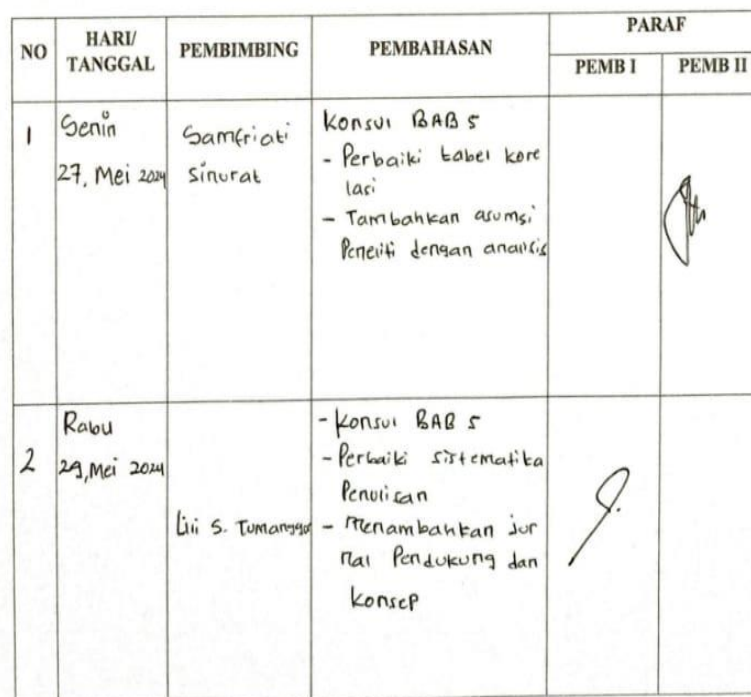 NO HARI/ TANGGAL PEMBIMBING PEMBAHASAN PARAF
PEMB I PEMB II
1 Senin 27, Mei 2024 Samfriati Sinurat
Konsul BAB 5
- Perbaiki tabel kore
lasi
- Tambahkan asumsi
Peneliti dengan analisis
2 Rabu 29, Mei 2024 Lili S. Tumanggor
- Konsul BAB 5
- Perbaiki sistematika
Penulisan
- Menambahkan jur
nal Pendukung dan
Konsep